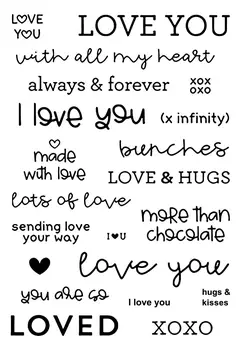 LOVE
YOU
LOVE YOU
with all my heart
always & forever
xox
oxo
I love you
(x infinity)
made
with love
bunches
LOVE & HUGS
lots of love
more than
chocolate
sending love
your way
I♥U
♥
love you
you are so
I love you
hugs &
kisses
LOVED
XOXO